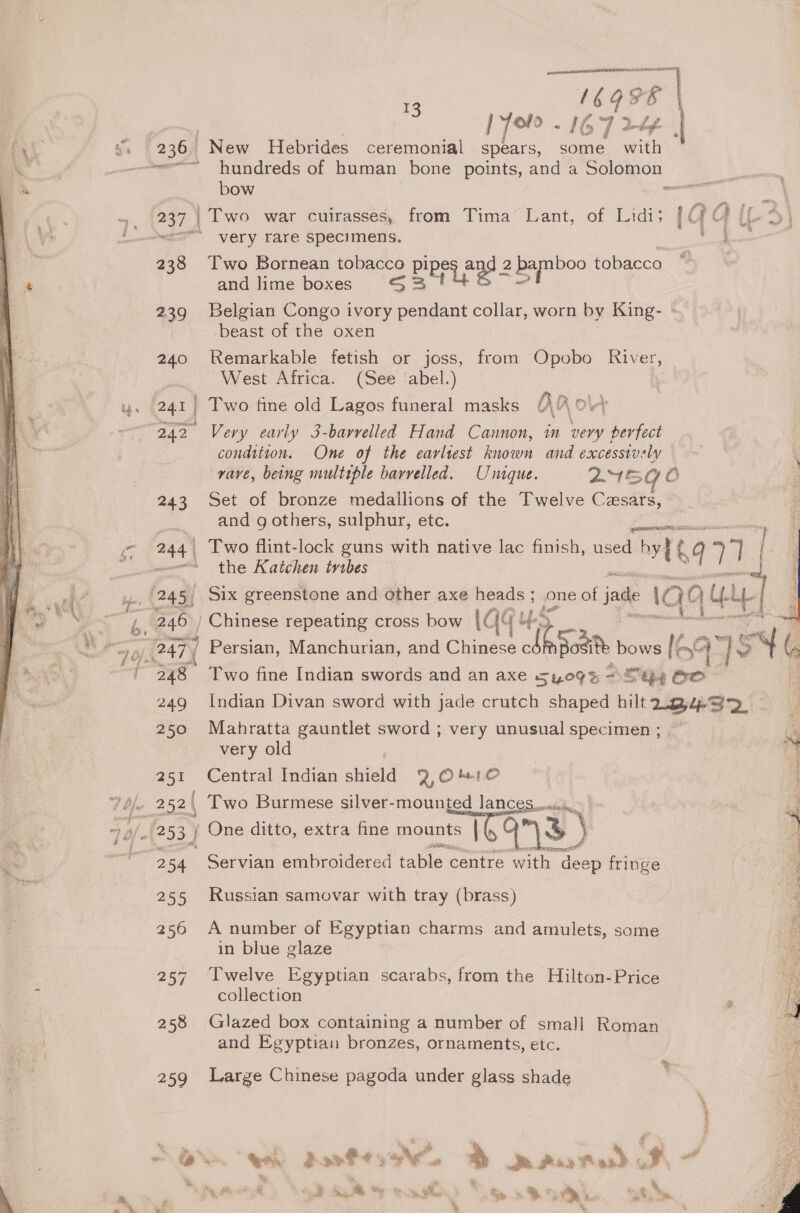 13
16998
236 New Hebrides ceremonial spears, some with
hundreds of human bone points, and a Solomon
bow
237 Two war cuirasses, from Tima Lant, of Lidi;
very rare specimens.
238 Two Bornean tobacco pipes and 2 bamboo tobacco
and lime boxes
239 Belgian Congo ivory pendant collar, worn by King-
beast of the oxen
240 Remarkable fetish or joss, from Opobo River,
West Africa. (See label.)
241 Two fine old Lagos funeral masks
242 Very early 3-barrelled Hand Cannon, in very perfect
condition. One of the earliest known and excessively
rare, being multiple barrelled. Unique.
243 Set of bronze medallions of the Twelve Cæsars,
and 9 others, sulphur, etc.
244 Two flint-lock guns with native lac finish, used by
the Katchen tribes
245 Six greenstone and other axe heads; one of jade
246 Chinese repeating cross bow
247 Persian, Manchurian, and Chinese composite bows
248 Two fine Indian swords and an axe
249 Indian Divan sword with jade crutch shaped hilt
250 Mahratta gauntlet sword; very unusual specimen;
very old
251 Central Indian shield
252 Two Burmese silver-mounted lances
253 One ditto, extra fine mounts 16973
254 Servian embroidered table centre with deep fringe
255 Russian samovar with tray (brass)
256 A number of Egyptian charms and amulets, some
in blue glaze
257 Twelve Egyptian scarabs, from the Hilton-Price
collection
258 Glazed box containing a number of small Roman
and Egyptian bronzes, ornaments, etc.
259 Large Chinese pagoda under glass shade